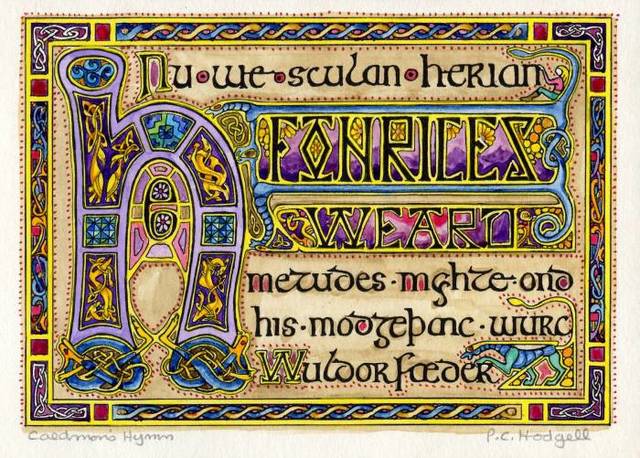 Nu·we·sculan·herian
heFONRICES
WEARD
metudes· ·ond
his·modgeþanc·wurc
Wuldorfæder
Caedmon's Hymn P.C. Hodgell